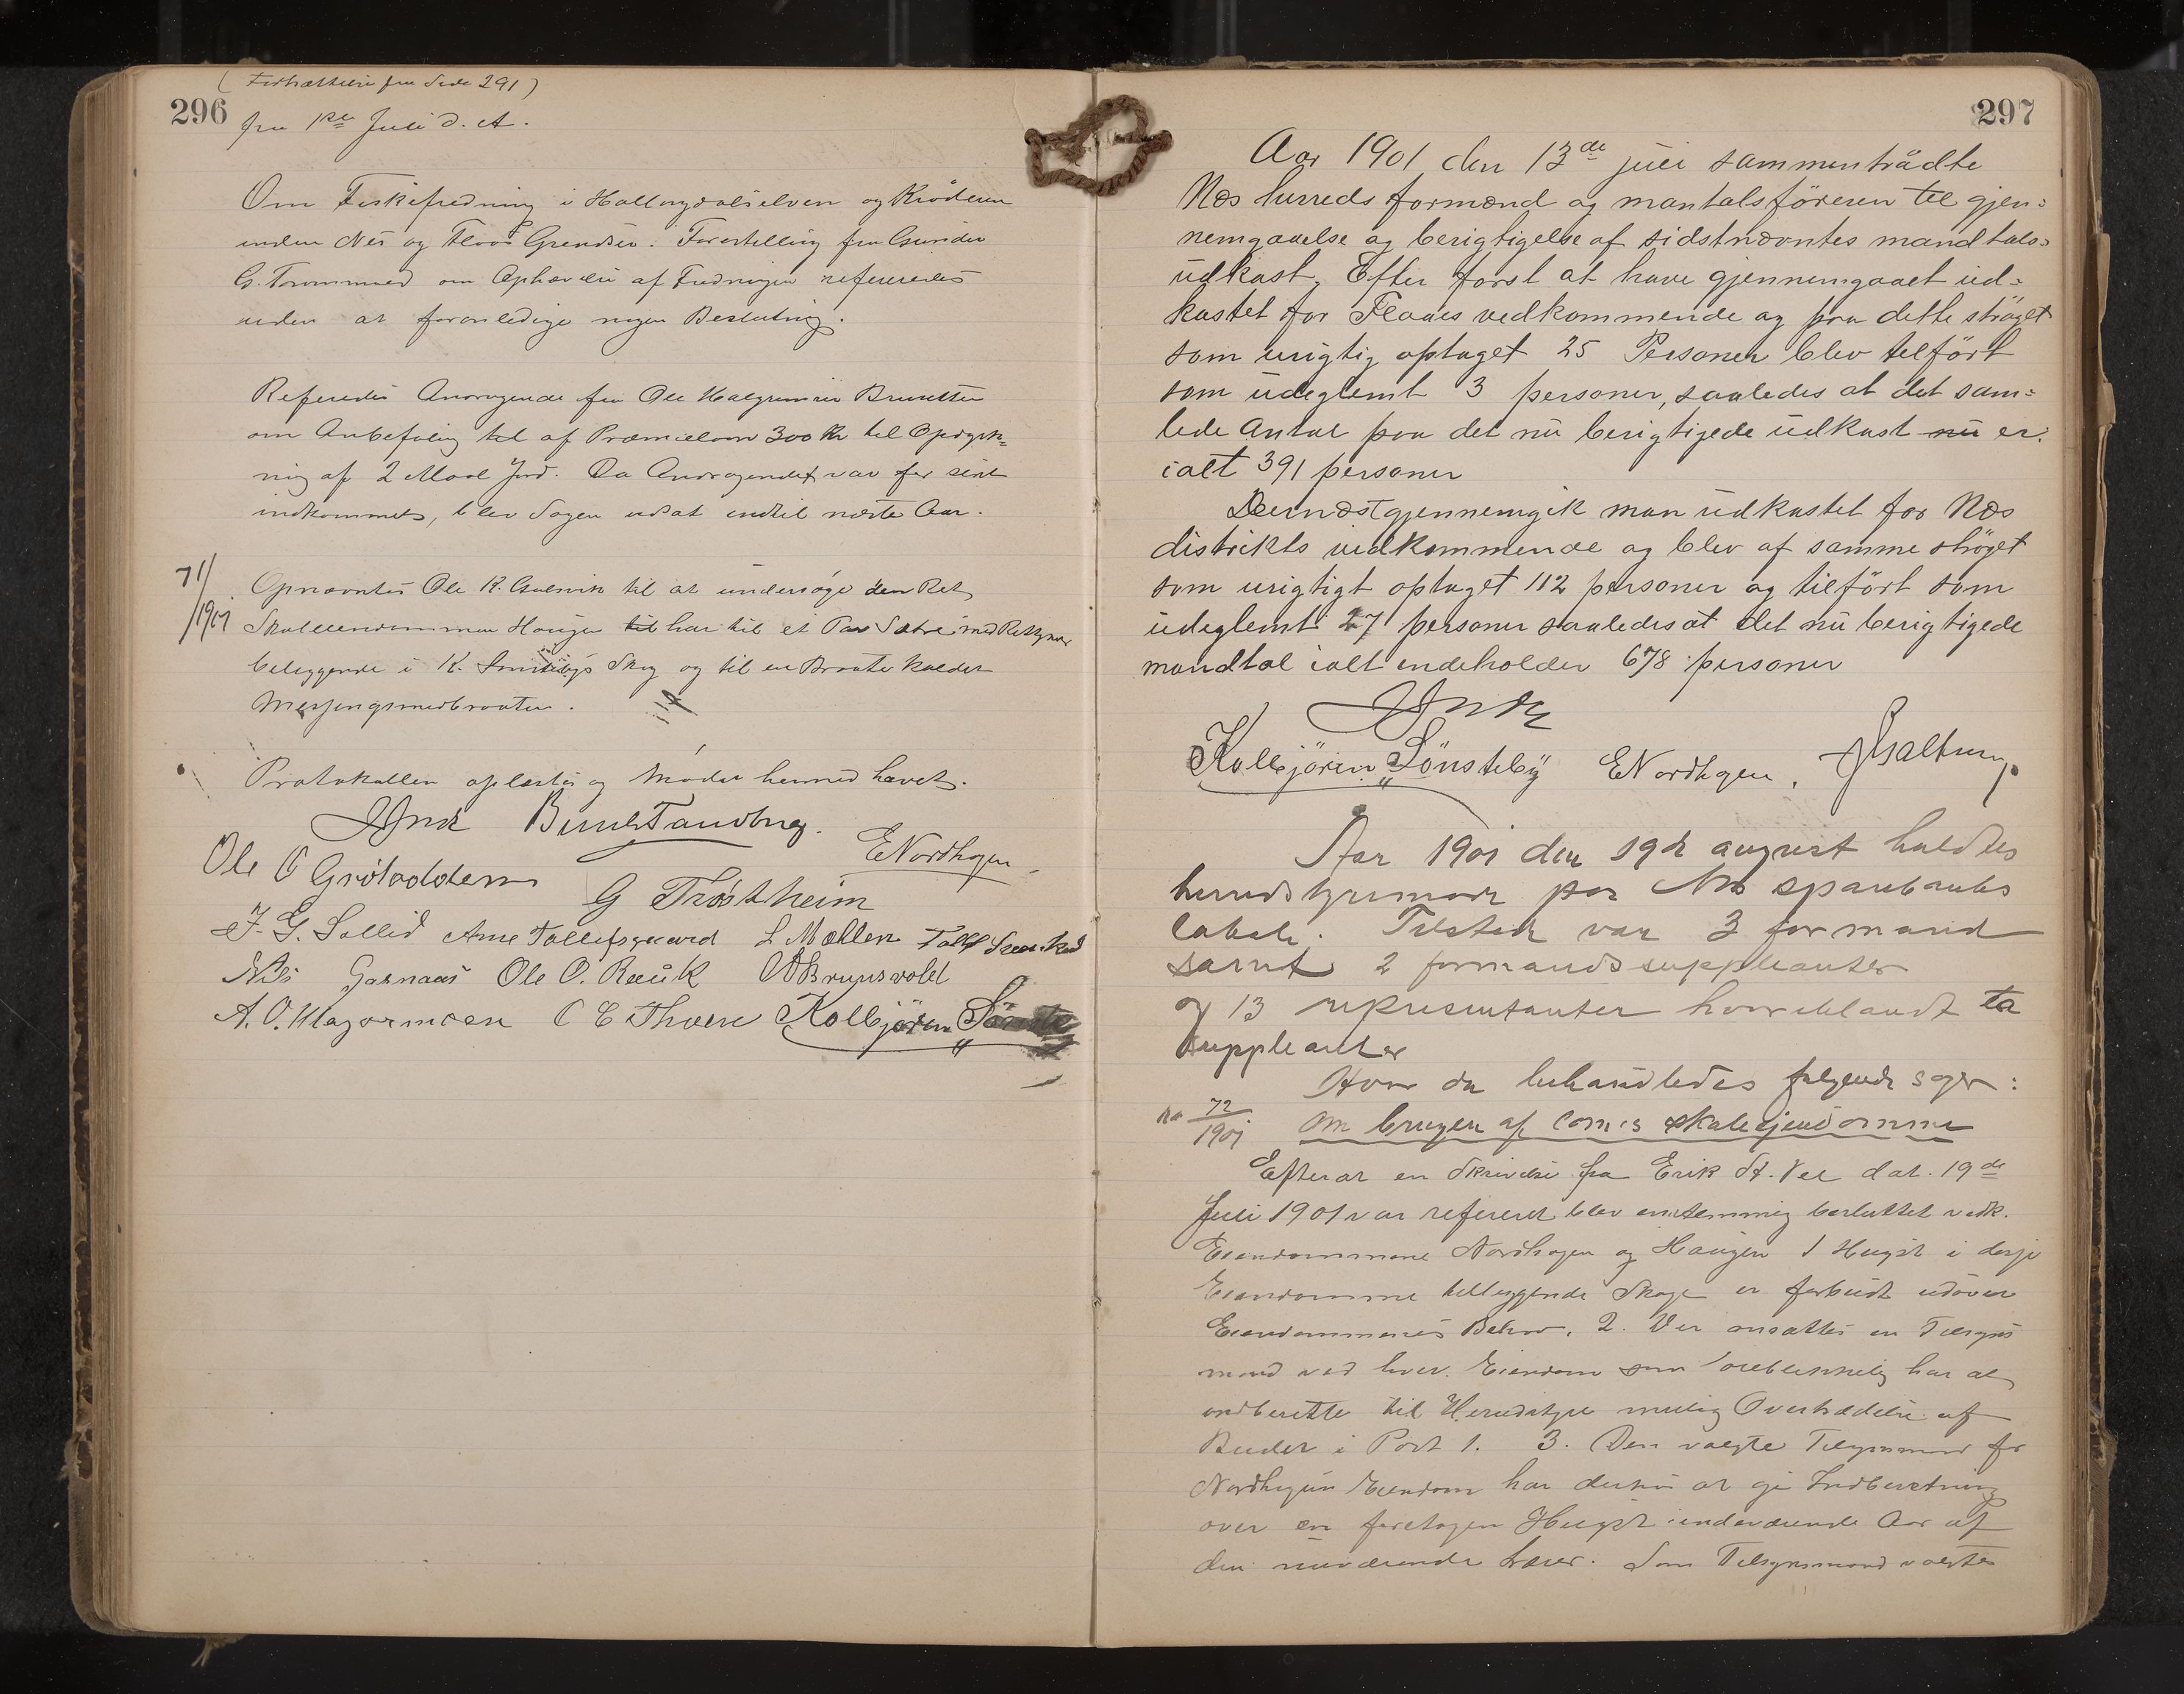 (Fortsættelse fra Side 291)
296
fra 1ste Juli d. A.
Om Fiskefredning i Hallingdalselven og Krøderen
inden Nes og Flaas Grendser. Forestilling fra Gunder
G. Trommald om Ophævelse af Fredningen refereredes
uden at foranledige nogen Beslutning.
Referedes Andragende fra Ole Halgrimsen
om Anbefaling til af Præmielaan 300 Kr til Opdyrk=
ning af 2 Maal Jord. Da Andragendet var for sent
indkommet, blev Sagen udsat indtil næste Aar.
71/1901
Opnævntes Ole K. Gulsvik til at undersøge den Ret
Skoleeiendommen Haugen til har til et Par Sætre med Rettigheder
beliggende i K. Skog og til en Braate kaldet
Protokollen oplæstes og Mødet hermed hævet.
ENordhagen
Ole O Grøtoddens
G Trøstheim
F. G. Sollid Arne Tollefsgaard L Møllen
Nils Garnaas Ole O. Rauk ABrunsvold
A. O. Hagarmoen O E Thoen Kolbjörn Sönste
297
Aar 1901 den 13de juli sammentrådte
Nes herreds formænd og mantalsföreren til gjen=
nemgaaelse og berigtigelse af sidstnævntes mandtals=
udkast. Efter først at have gjennemgaaet ud=
kastet for Flaaes vedkommende og fra dette ströget
som urigtig optaget 25 Personer blev tilfört
som udeglemt 3 personer, saaledes at det sam=
lede antal paa det nu berigtigede udkast nu er
ialt 391 personer
Dernæst gjennemgik man udkastet for Nes
distrikts vedkommende og blev af samme ströget
som urigtigt optaget 112 personer og tilfört som
udeglemt 27 personer saaledes at det nu berigtigede
mandtal ialt indeholder 678 personer
Kolbjörn Sönsteby ENordhagen.
Aar 1901 den 19de august holdtes
herredsstyremöde paa Nes sparebanks
lokale. Tilstede var 3 formænd
samt 2 formandssuppleanter
og 13 repræsentanter hvoriblandt to
suppleanter
Hvor da behandledes følgende sager:
No 72/1901 Om brugen af komes skoleejendomme
Efterat en Skrivelse fra Erik St. Vel dat. 19de
Juli 1901 var refereret blev enstemmig besluttet vedk.
Eiendommene Nordhagen og Haugen 1 Hugst i disse
Eiendomme tilliggende Skoge er forbudt udover
Eiendommenes Behov. 2. Der ansættes en Tilsyns
mand ved hver Eiendom som öieblikkelig har at
indberette til Herredsstyre mulig Overtrædelse af
Budet i Post 1. 3. Den valgte Tilsynsmand for
Nordhagens Eiendom har desuden at gi Indberetning
over en foretagen Hugst indeværende Aar af
den nuværende Lærer. Som Tilsynsmand valgtes